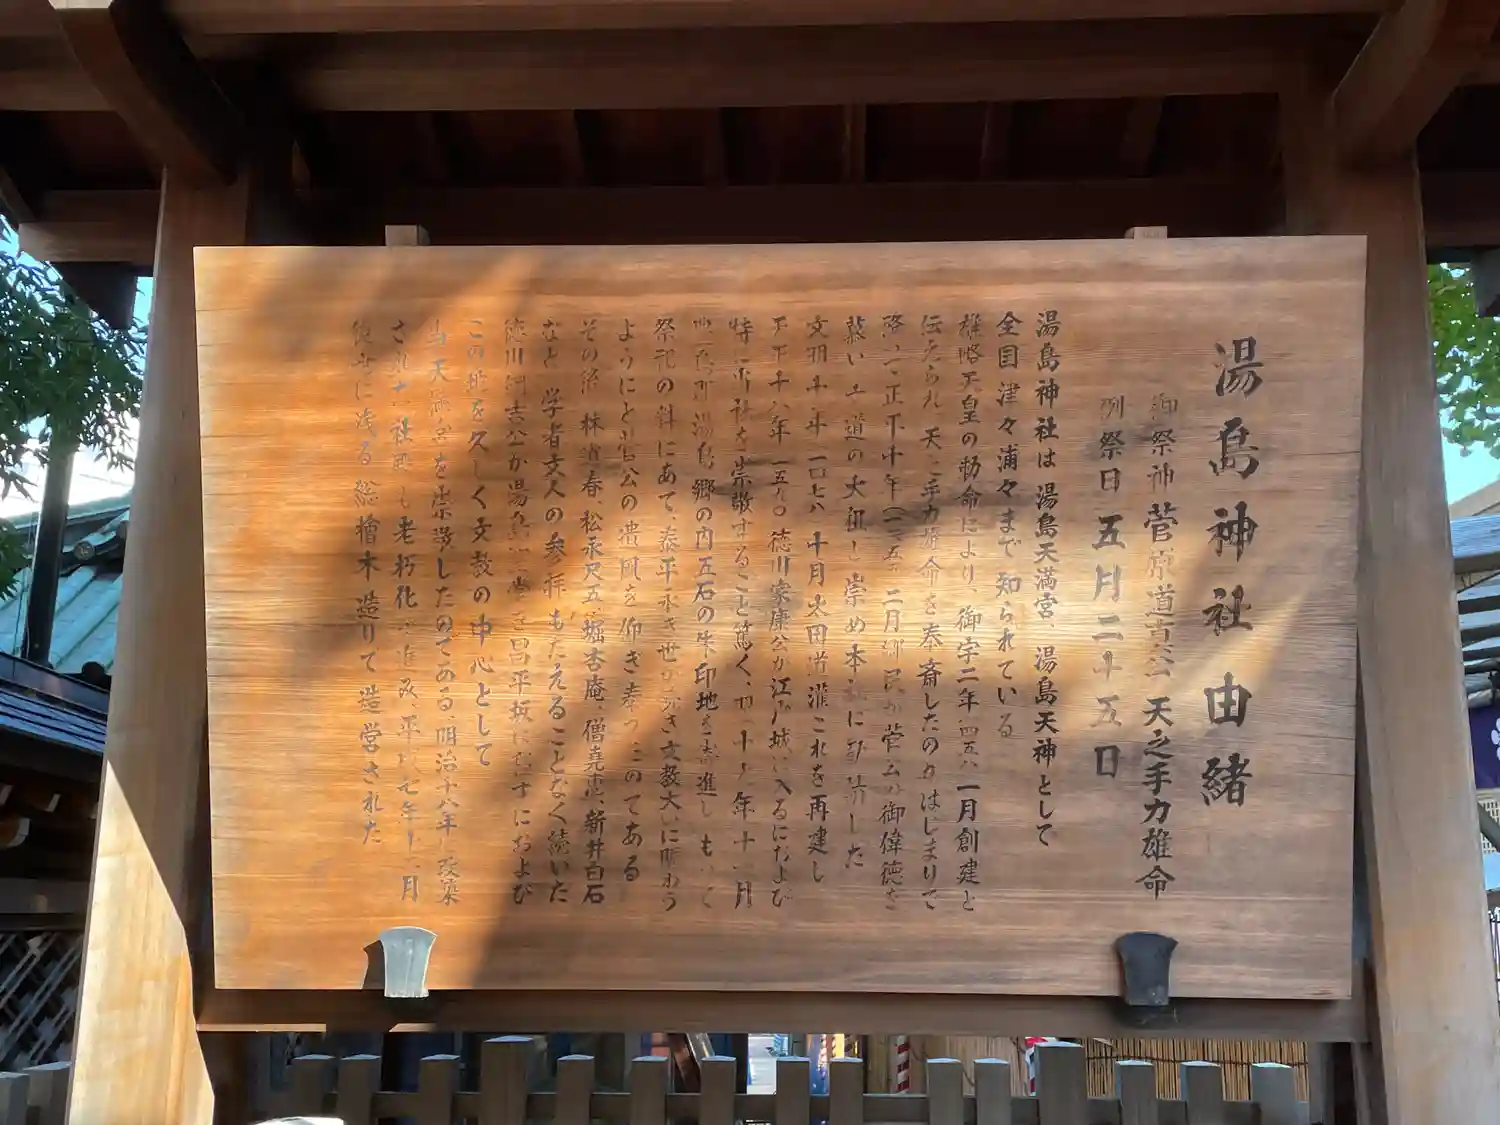 湯島神社由緒
御祭神 菅原道真公 天之手力雄命
例祭日 五月二十五日
湯島神社は 湯島天満宮、湯島天神として
全国津々浦々まで知られている
雄略天皇の勅命により、御宇二年 四五八 一月創建と
伝えられ 天之手力雄命を奉斎したのがはじまりで
降って正平十年(一三五五 二月郷民が菅公の御偉徳を
慕い 文道の大祖と崇め本社に勧請した
文明十年 一〇七八 十月 太田道灌これを再建し
天正十八年 一五九〇 徳川家康公が江戸城に入るにおよび
特に当社を崇敬すること篤く、 十九年十一月
豊島郡湯島郷の内五石の朱印地を寄進し もって
祭祀の料にあて、泰平永き世が続き文教大いに賑わう
ようにと菅公の遺風を仰ぎ奉ったのである
その後 林道春、松永尺五、堀杏庵、僧堯恵、新井白石
など 学者文人の参拝もたえることなく続いた
徳川綱吉公が湯島聖堂を昌平坂に移すにおよび
この地を久しく文教の中心として
当天満宮を崇敬したのである 明治十八年に改築
された社殿も老朽化が進み、平成七年十二月
後世に残る総檜木造りで造営された